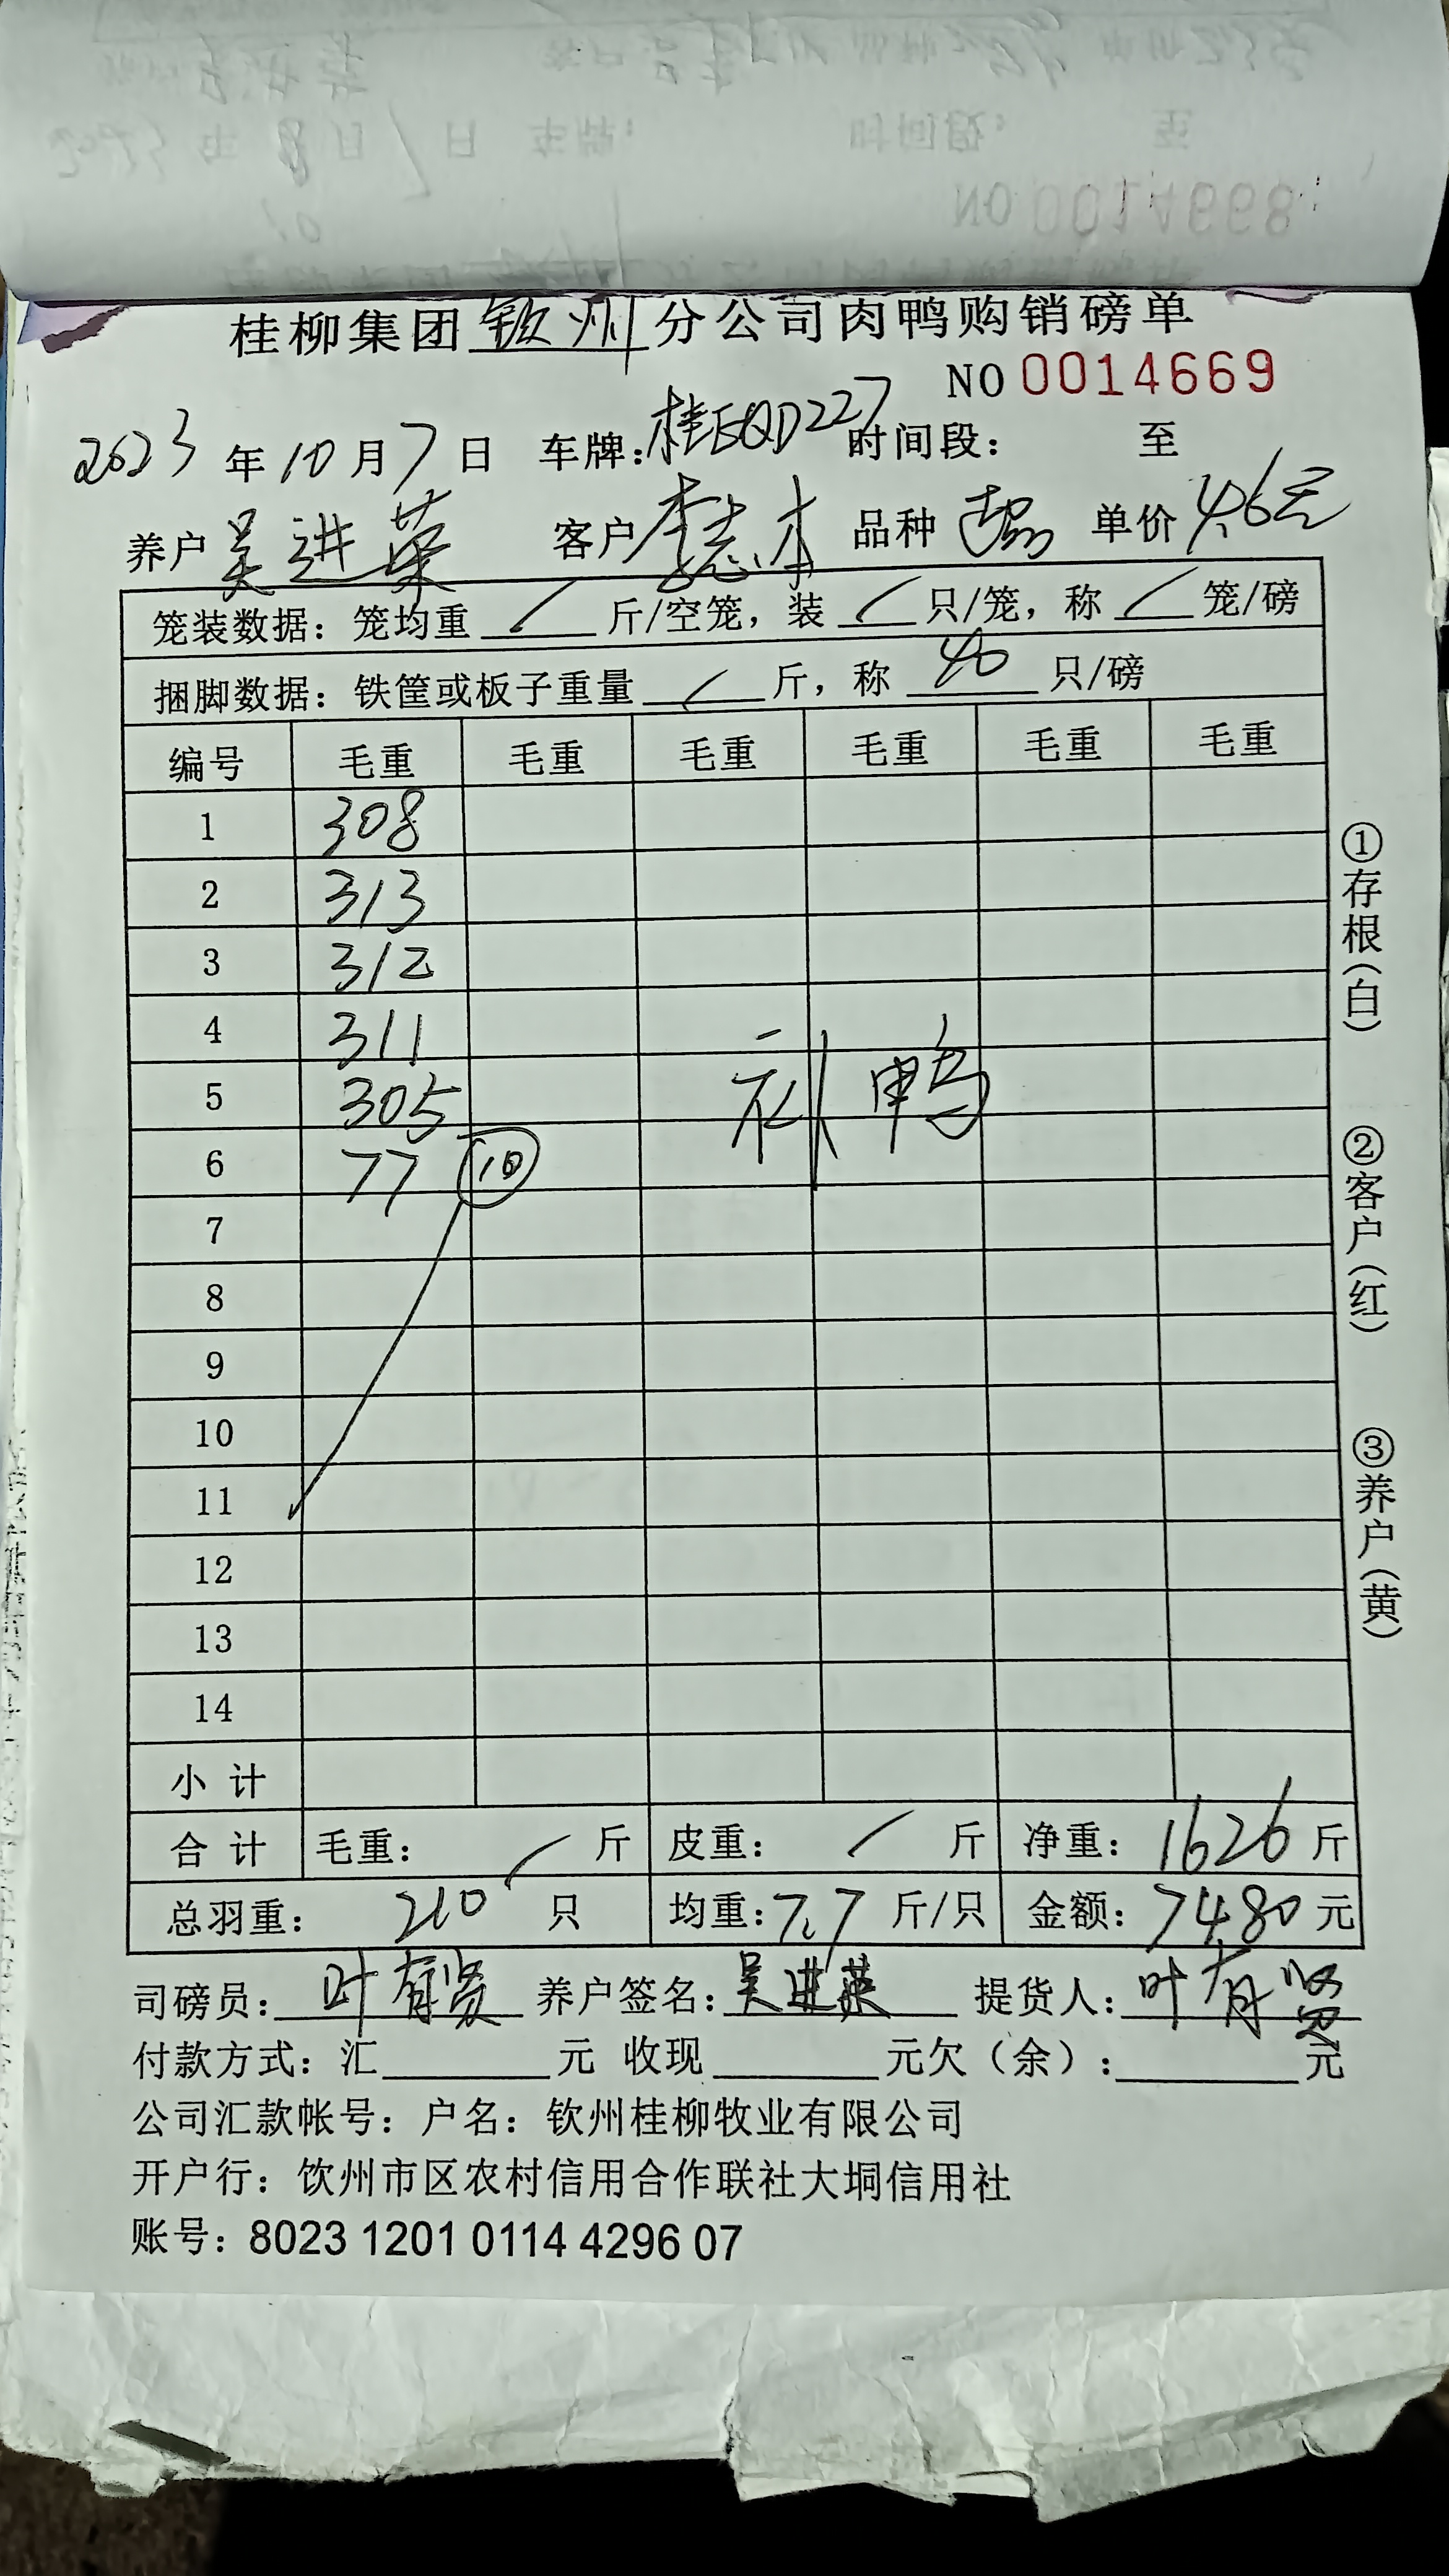 NO 0014668
桂柳集团 钦州 分公司肉鸭购销磅单
NO 0014669
2023 年 10 月 7 日 车牌: 桂EQD227 时间段: 至
养户 吴进英 客户 李志本 品种 单价 4.6元
笼装数据: 笼均重 / 斤/空笼, 装 / 只/笼, 称 / 笼/磅
捆脚数据: 铁筐或板子重量 / 斤, 称 40 只/磅
编号 毛重 毛重 毛重 毛重 毛重 毛重
1 308
2 313
3 312
4 311
5 305
6 77 ⑩
补鸭
7
8
9
10
11
12
13
14
小计
合计 毛重: / 斤 皮重: / 斤 净重: 1626 斤
总羽重: 210 只 均重: 7.7 斤/只 金额: 7480 元
司磅员: 叶有贤 养户签名: 吴进英 提货人: 叶有贤
付款方式: 汇 元 收现 元欠(余): 元
公司汇款帐号: 户名: 钦州桂柳牧业有限公司
开户行: 饮州市区农村信用合作联社大垌信用社
账号: 8023 1201 0114 4296 07
①存根(白)
②客户(红)
③养户(黄)